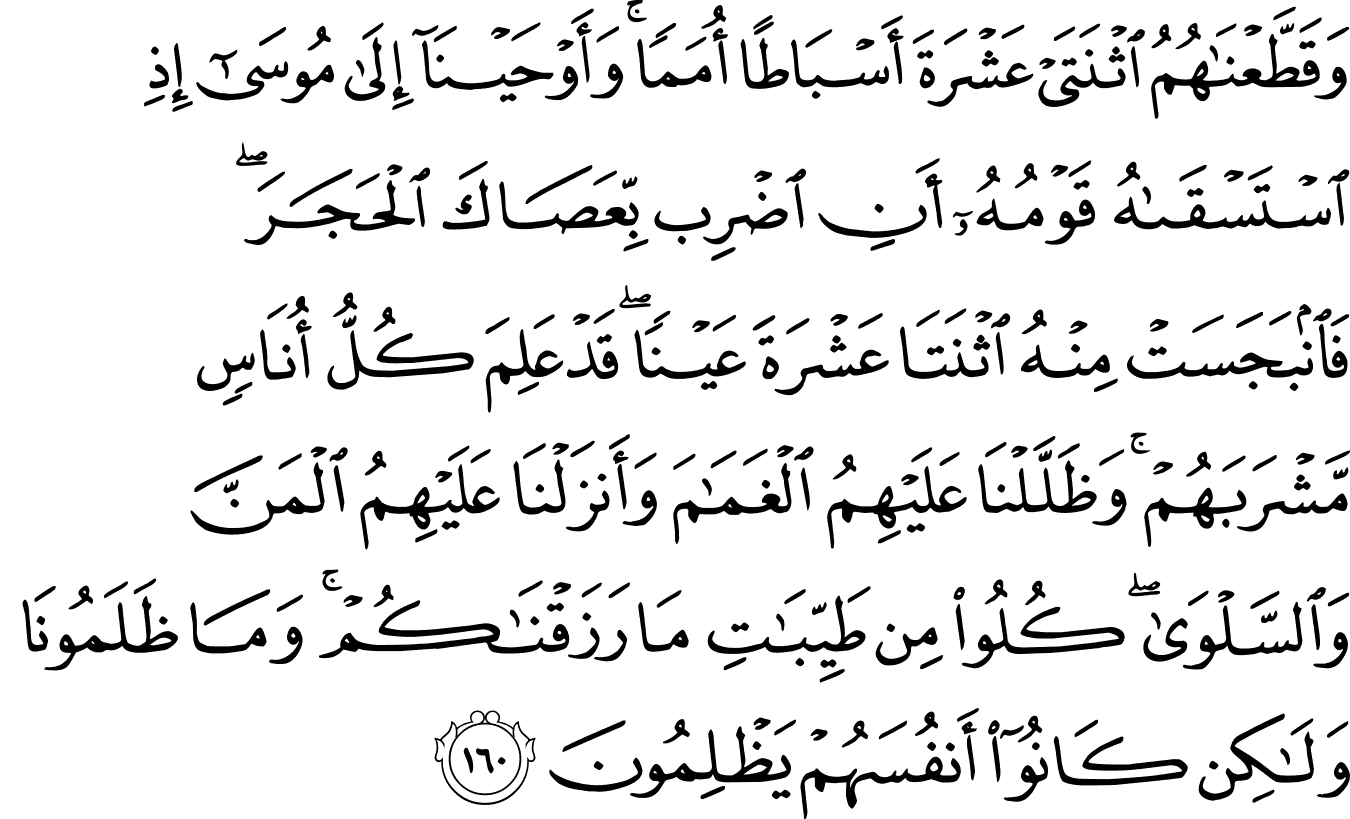 وَقَطَّعْنَٰهُمُ ٱثْنَتَىْ عَشْرَةَ أَسْبَاطًا أُمَمًا ۚ وَأَوْحَيْنَآ إِلَىٰ مُوسَىٰٓ إِذِ
ٱسْتَسْقَىٰهُ قَوْمُهُۥٓ أَنِ ٱضْرِب بِّعَصَاكَ ٱلْحَجَرَ ۖ
فَٱنۢبَجَسَتْ مِنْهُ ٱثْنَتَا عَشْرَةَ عَيْنًا ۖ قَدْ عَلِمَ كُلُّ أُنَاسٍ
مَّشْرَبَهُمْ ۚ وَظَلَّلْنَا عَلَيْهِمُ ٱلْغَمَٰمَ وَأَنزَلْنَا عَلَيْهِمُ ٱلْمَنَّ
وَٱلسَّلْوَىٰ ۖ كُلُوا۟ مِن طَيِّبَٰتِ مَا رَزَقْنَٰكُمْ ۚ وَمَا ظَلَمُونَا
وَلَٰكِن كَانُوٓا۟ أَنفُسَهُمْ يَظْلِمُونَ ١٦٠